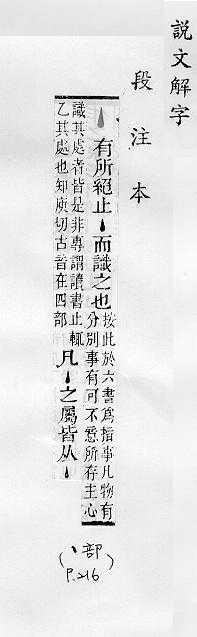 説文解字
段注本
丶有所絕止丶而識之也
按此於六書爲指事凡物有
分別事有可不意所存主心
識其處者皆是非專謂讀書止輒
乙其處也知庾切古音在四部
凡丶之屬皆从丶
(丶部)
P.216